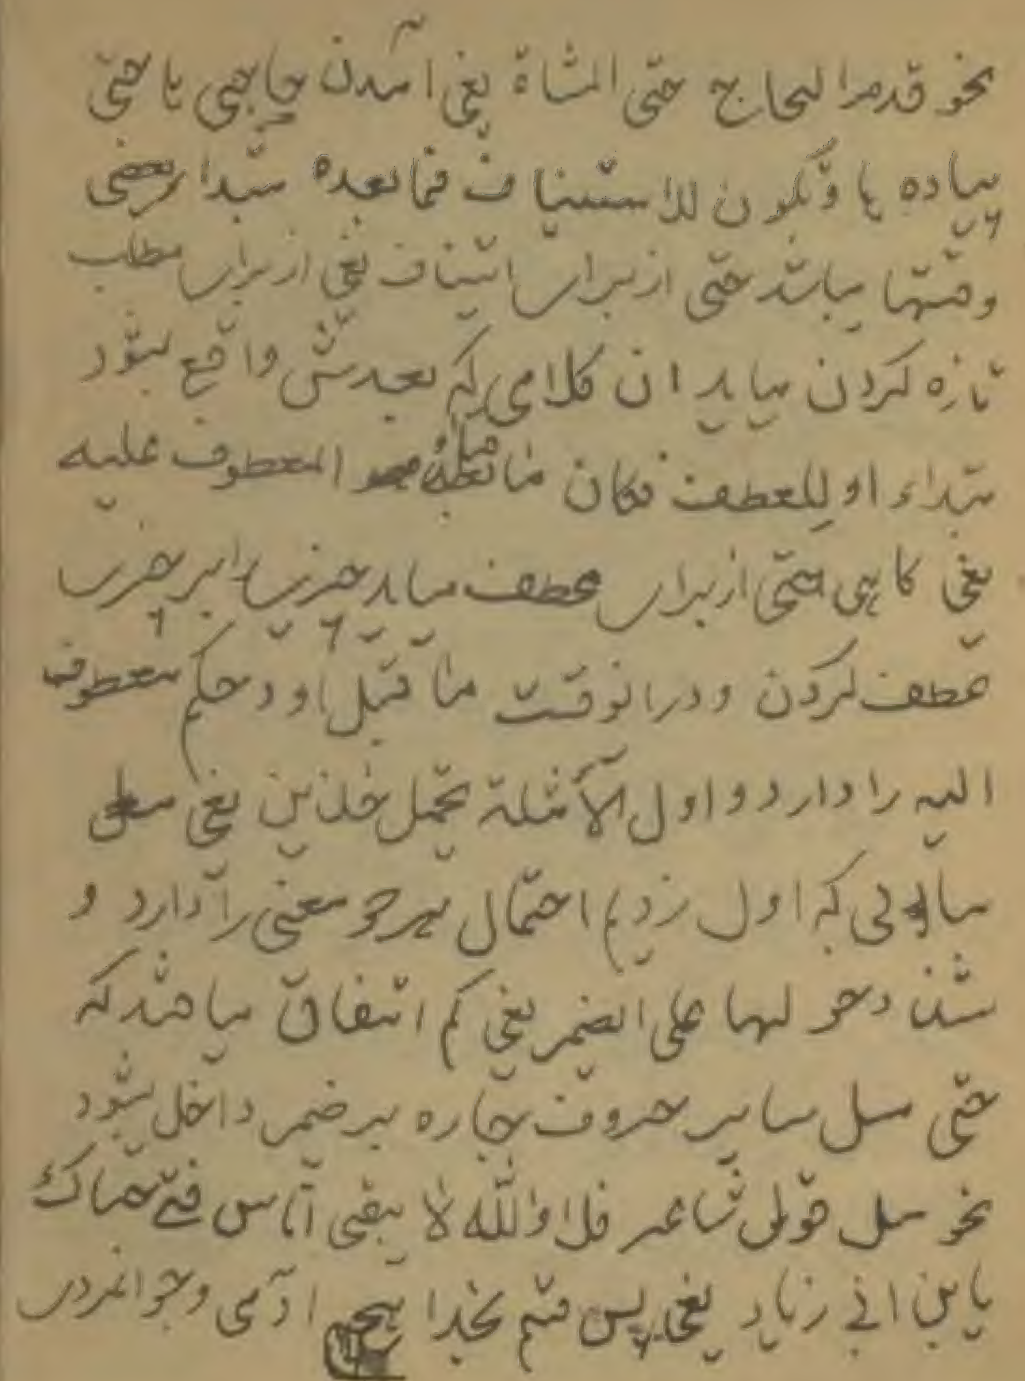 نحو قدم الحاج حتی المشاة یعنی آمدن حاجی یا حتی
پیاده ها و تکون للاستیناف فما بعده مبتدا یعضی
وقتها میباشد حتی از برای استیناف یعنی از برای مطلب
تازه کردن میاید ان کلامی که بعدش واقع بشود
مبتداء او للعطف فکان ما قبله المعطوف علیه
یعنی کاهی حتی از برای عطف میاید چیزیرا بر چیزی
عطف کردن و درانوقت ما قبل او حکم معطوف
الیه را دارد و اول الأمثلة یحتمل خلافین یعنی مثل
مثالی که اول زدیم احتمال هر دو معنی را دارد و
شذ دخولها علی الضمیر یعنی کم اتفاق میافتد که
حتی مثل سایر حروف جاره بر ضمیر داخل بشود
نحو مثل قولی شاعر فلا والله لا یبقی آناس فتی حتاک
یابن ابی زیاد یعنی پس قسم بخدا آدمی و جوانمردی